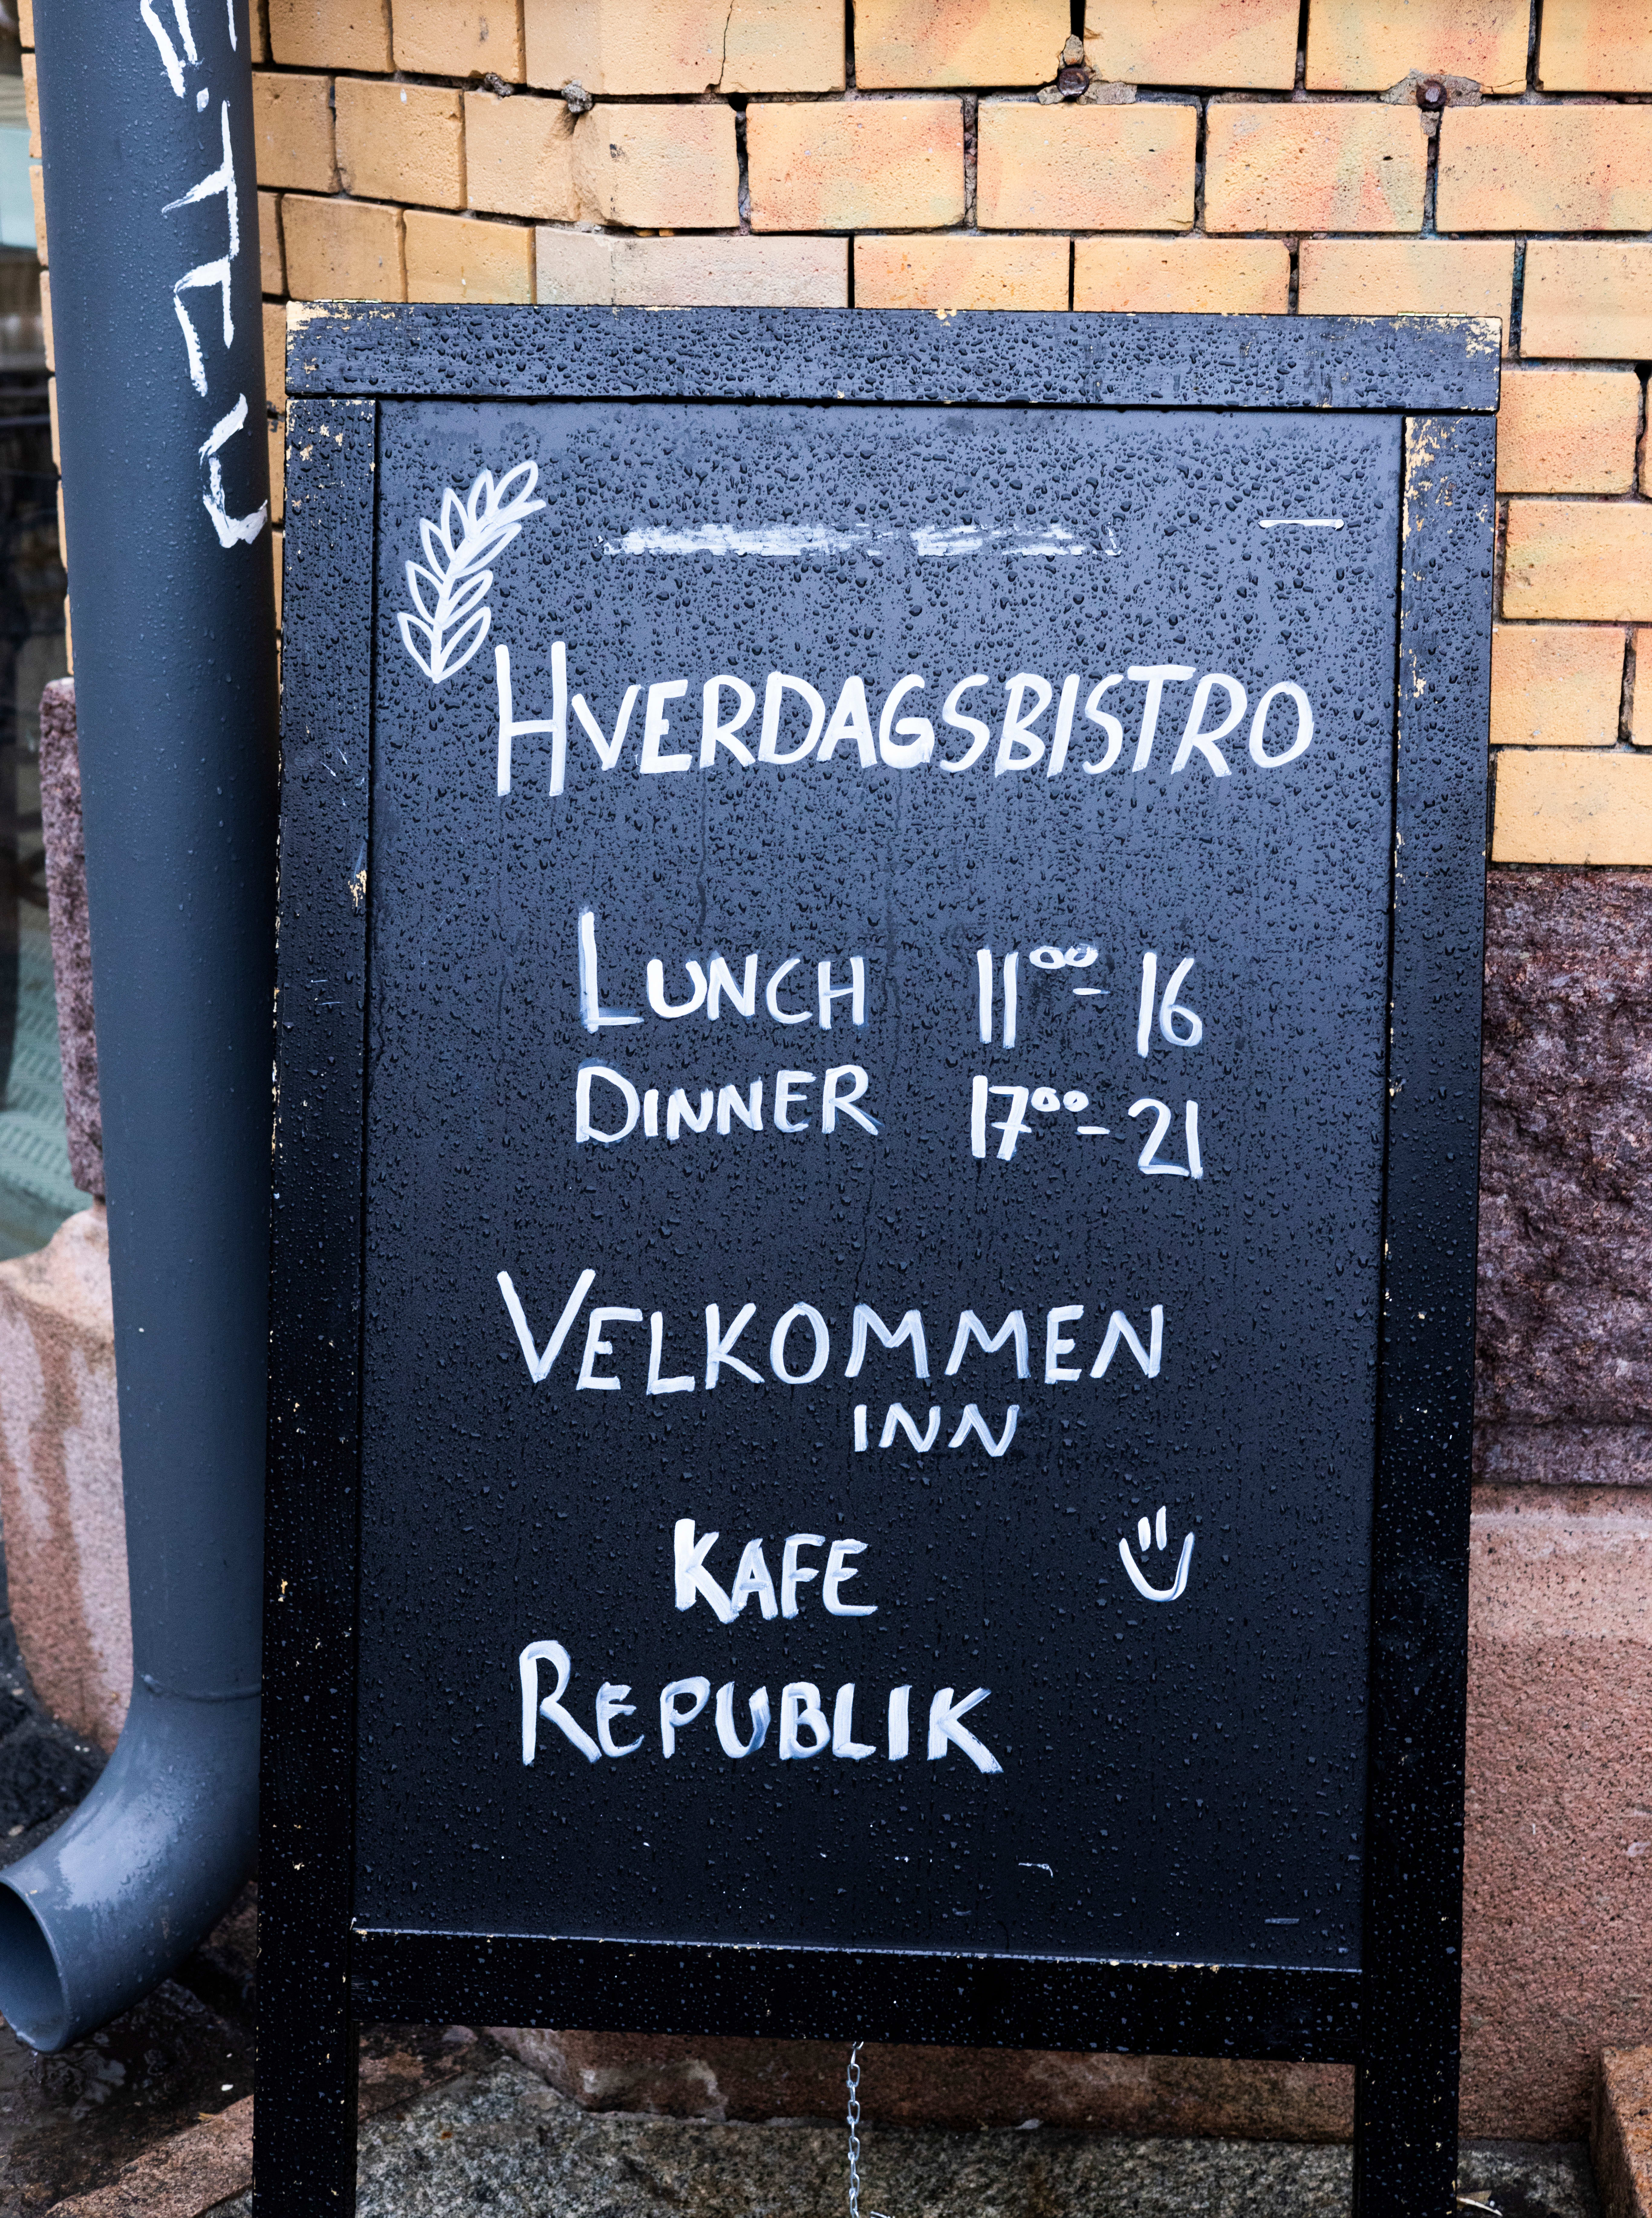 HVERDAGSBISTRO
LUNCH 11⁰⁰ - 16
DINNER 17⁰⁰ - 21
VELKOMMEN
INN
KAFE
REPUBLIK